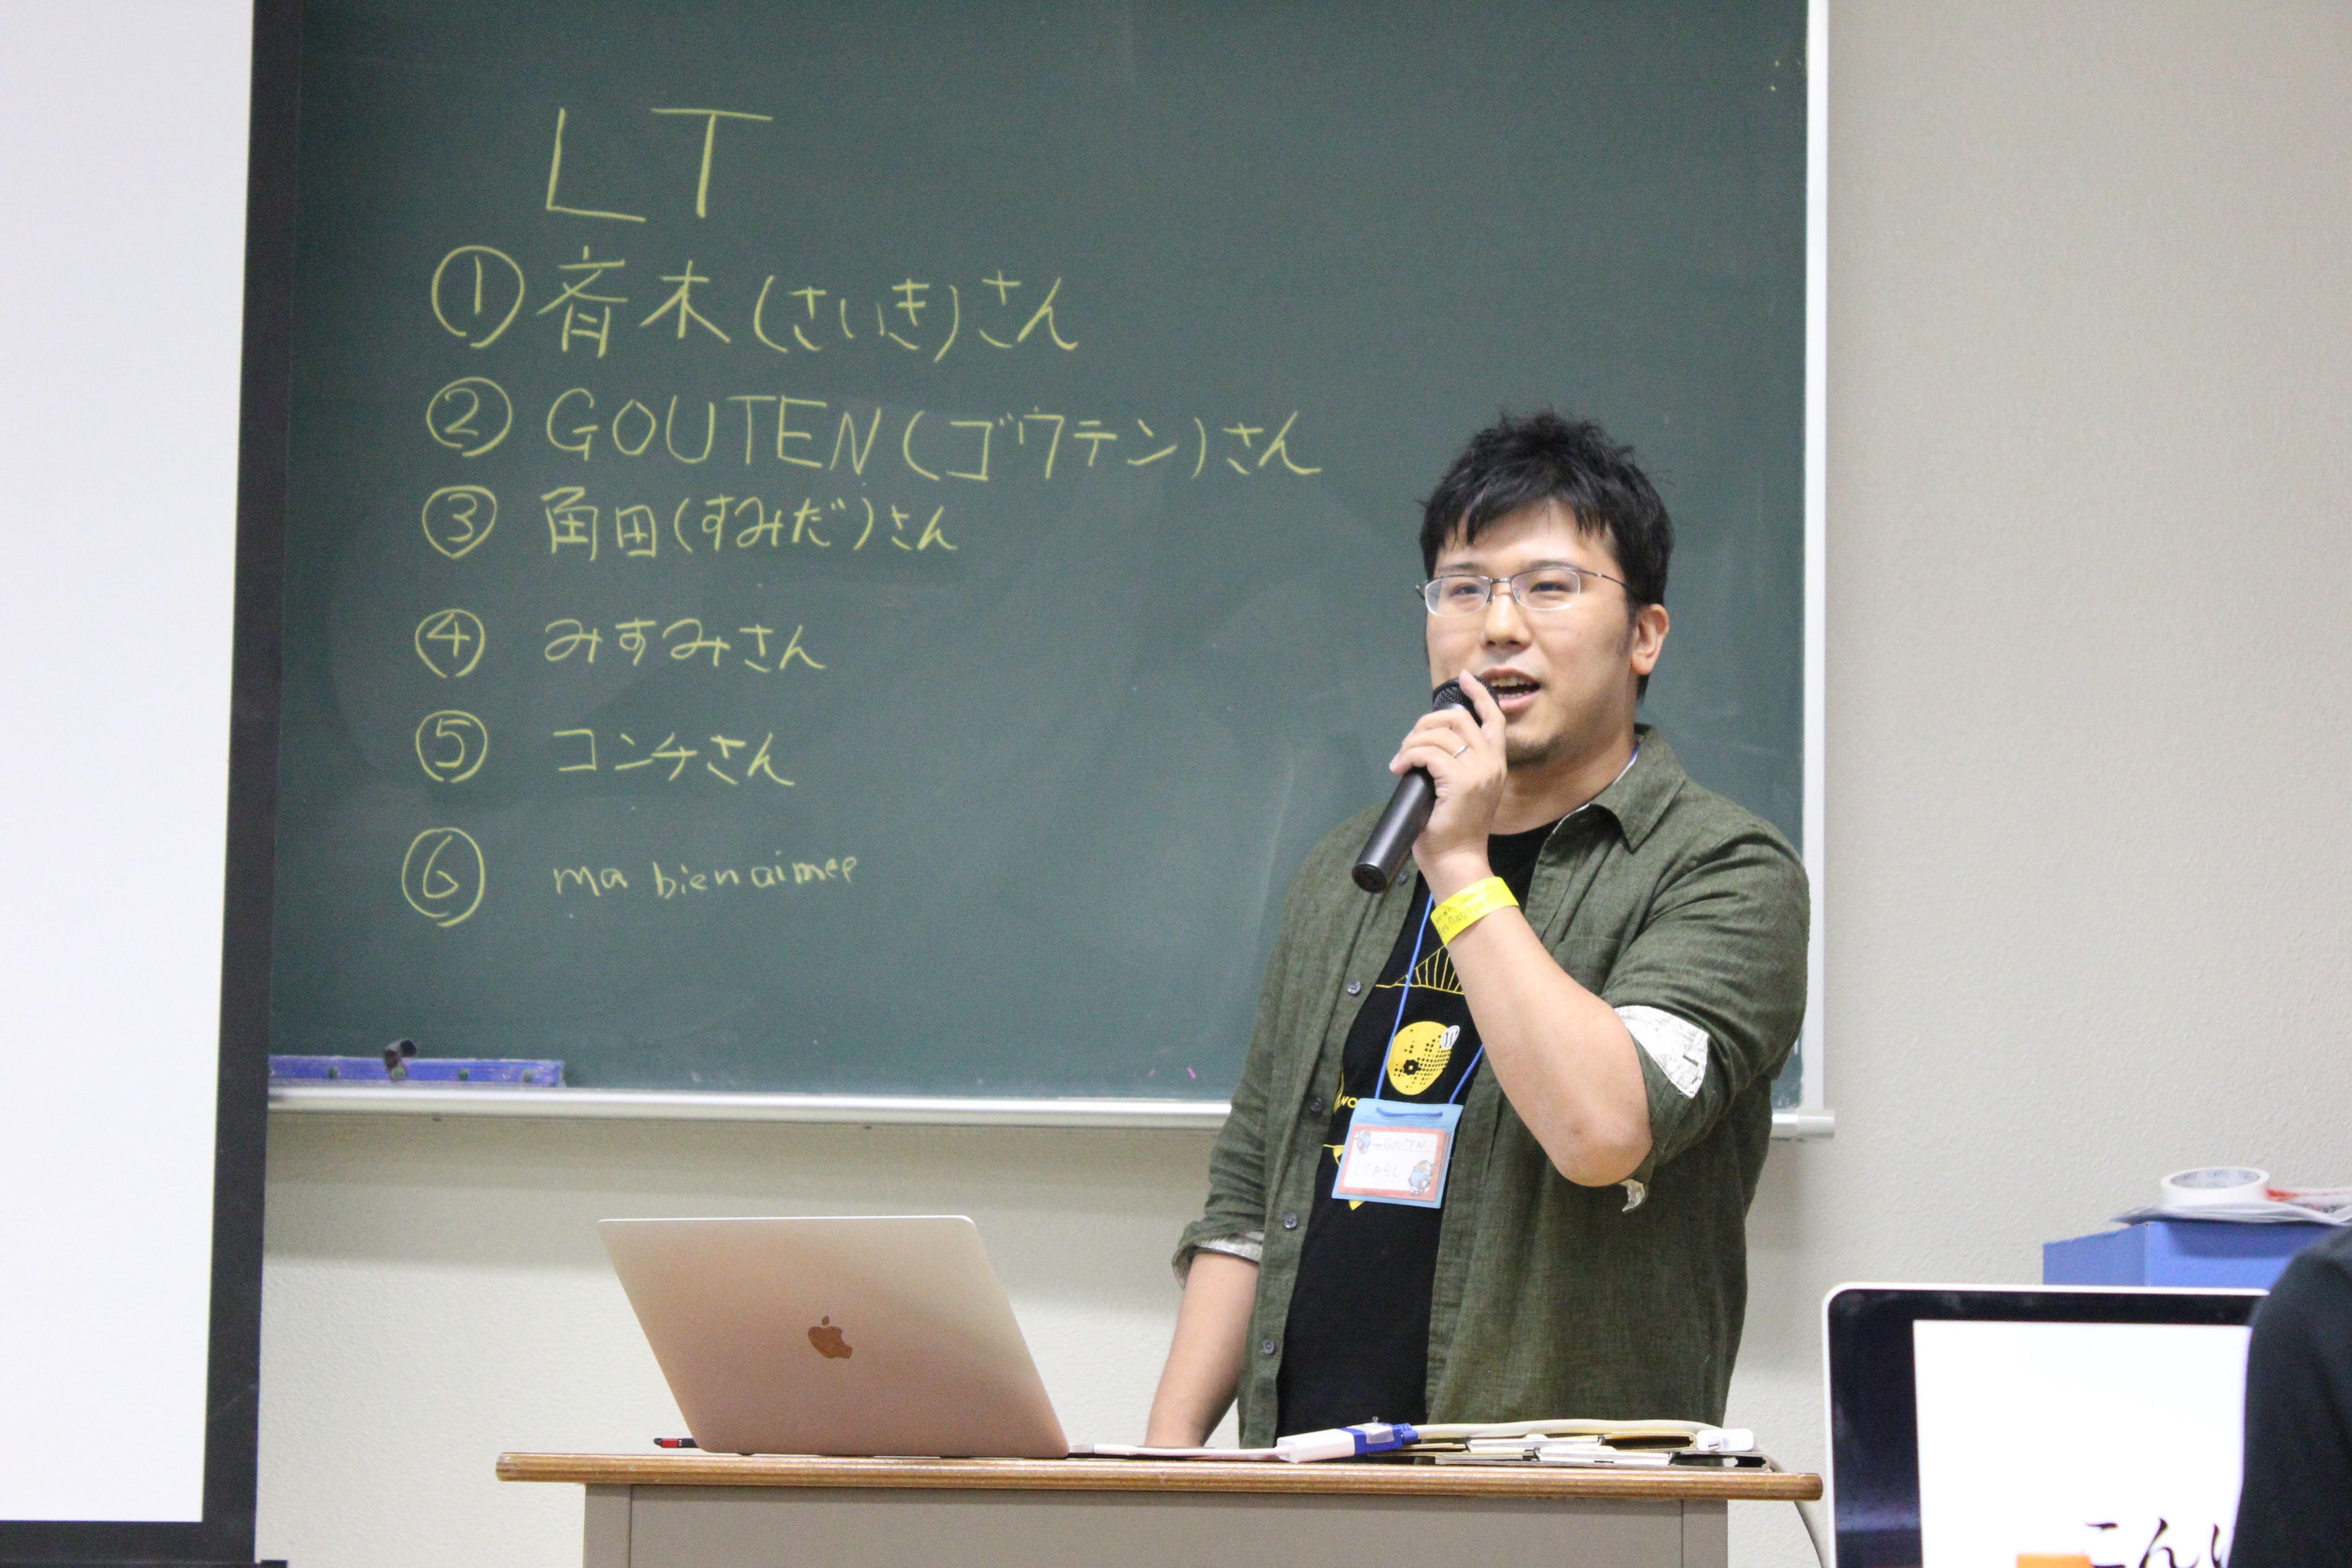 LT
①斉木(さいき)さん
②GOUTEN(ゴウテン)さん
③角田(すみだ)さん
④みすみさん
⑤コンチさん
⑥ma bienaimee
GOUTEN
こんに